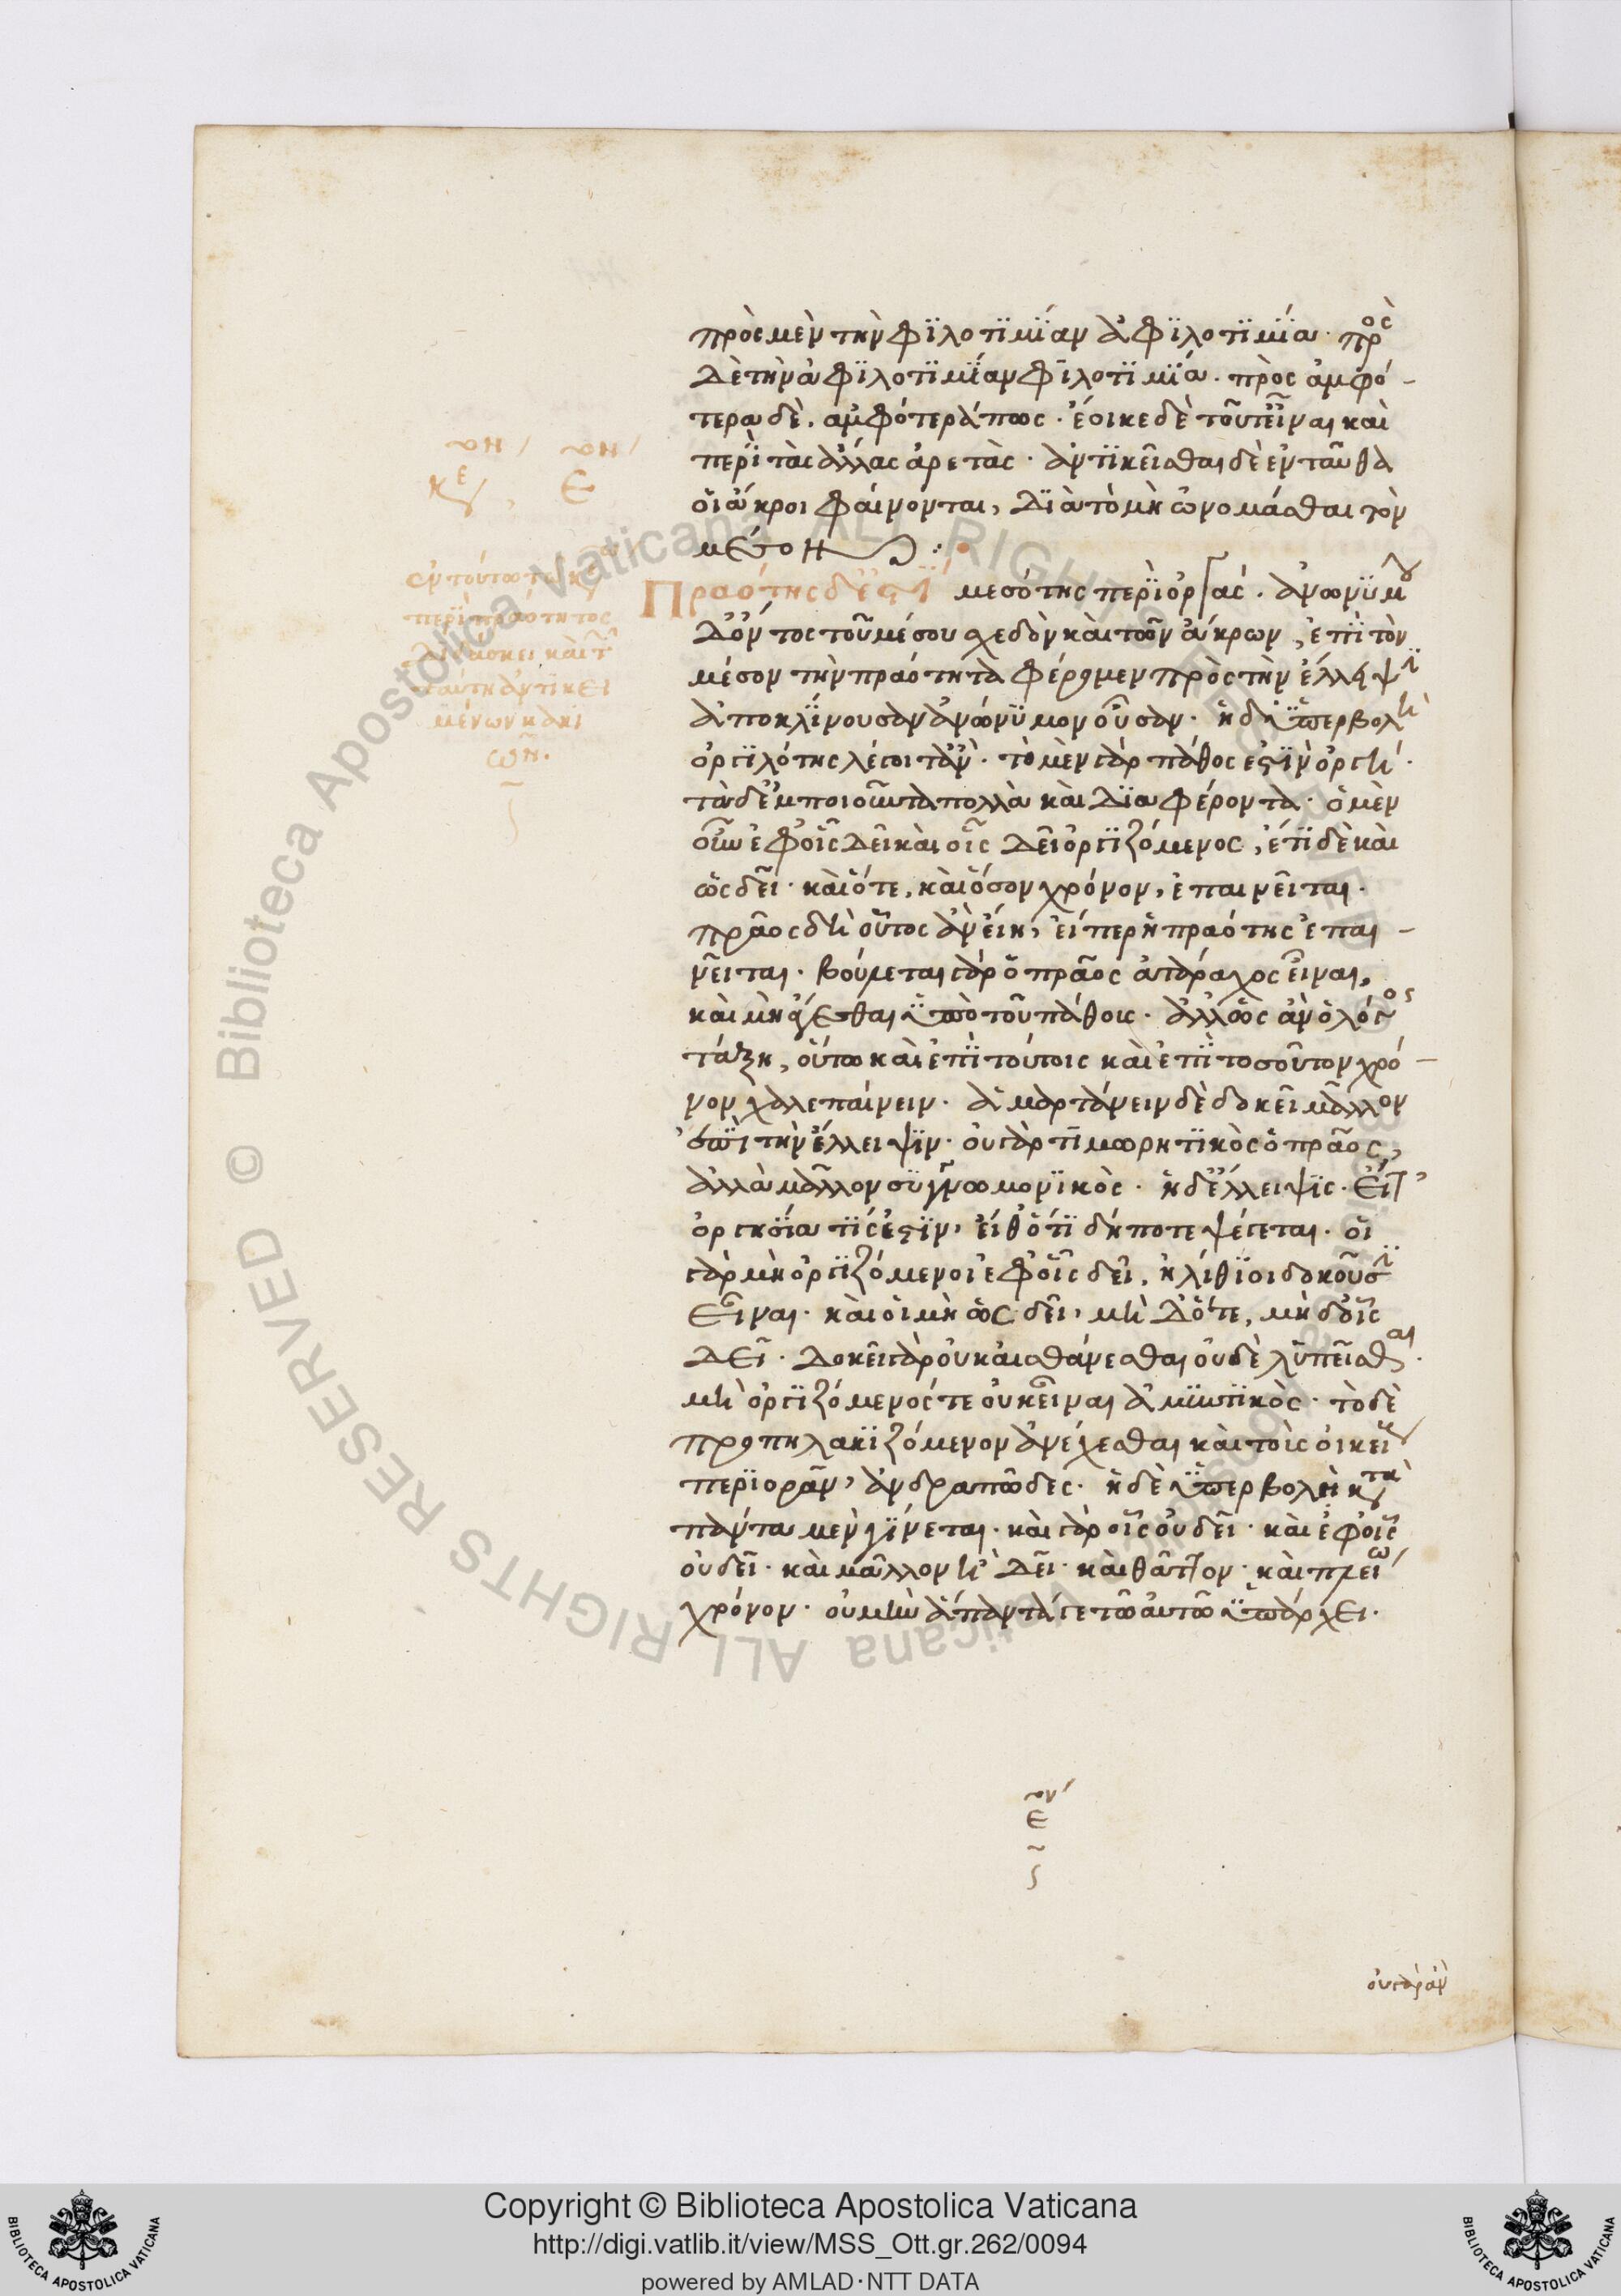 πρὸς μὲν τὴν φϊλοτϊμΐαν ἀφϊλοτϊμΐα· πρὸς
δὲ τὴν ἀφϊλοτϊμΐαν φϊλοτϊμΐα. πρὸς ἀμφό-
τερα δὲ, ἀμφότερά πως· ἔοικε δὲ τοῦτ εἶναι καὶ
περὶ τὰς ἄλλας ἀρετὰς· ἀντϊκεῖσθαι δὲ ἐνταῦθα
οἱ ἄκροι φαίνονται, διὰ τὸ μὴ ὠνομάσθαι τὸν
μέσον :·
Πραότης δ' ἐστὶ μεσότης περὶ ὀργάς. ἀνωνϋμου
δ' ὄντος τοῦ μέσου σχεδὸν καὶ τῶν ἄκρων, ἐπὶ τὸν
μέσον τὴν πραότητα φέρομεν πρὸς τὴν ἔλλειψϊ
ἀποκλΐνουσαν ἀνώνϋμον οὖσαν· ἡ δ' ὑπερβολὴ
ὀργϊλότης λέγοιτ' ἂν· τὸ μὲν γὰρ πάθος ἐστὶν ὀργή·
τὰ δ' ἐμποιοῦντα πολλὰ καὶ διαφέροντα· ὁ μὲν
οὖν ἐφ' οἷς δεῖ καὶ οἷς δεῖ ὀργϊζόμενος, ἔτϊ δὲ καὶ
ὡς δεῖ· καὶ ὅτε, καὶ ὅσον χρόνον, ἐπαινεῖται.
πρᾶος δὴ οὗτος ἂν εἴη, εἴπερ ἡ πραότης ἐπαι-
νεῖται. βούλεται γὰρ ὁ πρᾶος ἀτάραχος εἶναι,
καὶ μὴ ἄγεσθαι ὑπὸ τοῦ πάθους· ἀλλ' ὡς ἂν ὁ λόγος
τάξη, οὕτω καὶ ἐπὶ τούτοις καὶ ἐπὶ τοσοῦτον χρό-
νον χαλεπαίνειν· ἁμαρτάνειν δὲ δοκεῖ μᾶλλον
ἐπὶ τὴν ἔλλειψϊν· οὐ γὰρ τϊμωρητϊκὸς ὁ πρᾶος,
ἀλλὰ μᾶλλον συγγνωμονϊκὸς· ἡ δ' ἔλλειψϊς. εἴτ'
ἀοργησΐα τϊς ἐστὶν, εἴθ' ὅτϊ δήποτε ψέγεται. οἱ
γὰρ μὴ ὀργϊζόμενοι ἐφ' οἷς δεῖ, ἠλίθϊοι δοκοῦσϊ
εἶναι· καὶ οἱ μὴ ὡς δεῖ, μὴ δ' ὅτε, μὴ δ' οἷς
δεῖ· δοκεῖ γὰρ οὐκ αἰσθάνεσθαι οὐδὲ λϋπεῖσθαι.
μὴ ὀργϊζόμενός τε οὐκ εἶναι ἀμϋντϊκὸς· τὸ δὲ
προπηλακϊζόμενον ἀνέχεσθαι καὶ τοὺς οἰκείους
περϊορᾶν, ἀνδραπῶδες· ἡ δὲ ὑπερβολὴ κατὰ
πάντα μὲν γΐνεται· καὶ γὰρ οἷς οὐ δεῖ· καὶ ἐφ' οἷς
οὐ δεῖ· καὶ μᾶλλον ἢ δεῖ· καὶ θᾶττον· καὶ πλείω
χρόνον· οὐ μὴν ἅπαντά γε τῶ αὐτῶ ὑπάρχει·
οὐ γὰρ ἂν
Copyright © Biblioteca Apostolica Vaticana
http://digi.vatlib.it/view/MSS_Ott.gr.262/0094
powered by AMLAD·NTT DATA